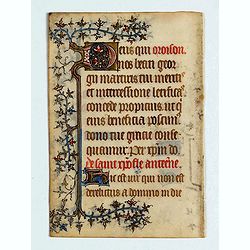 Deus qui oroison.
nos beati geor
gii martiris tui meriti
et intercessione letifica
concede propicius ut q
eius beneficia poscim
dono tue gracie conse
quamur. Per xpm do
de saint xpofle anteine.
Hic est vir qui non est
derelictus a domino in die